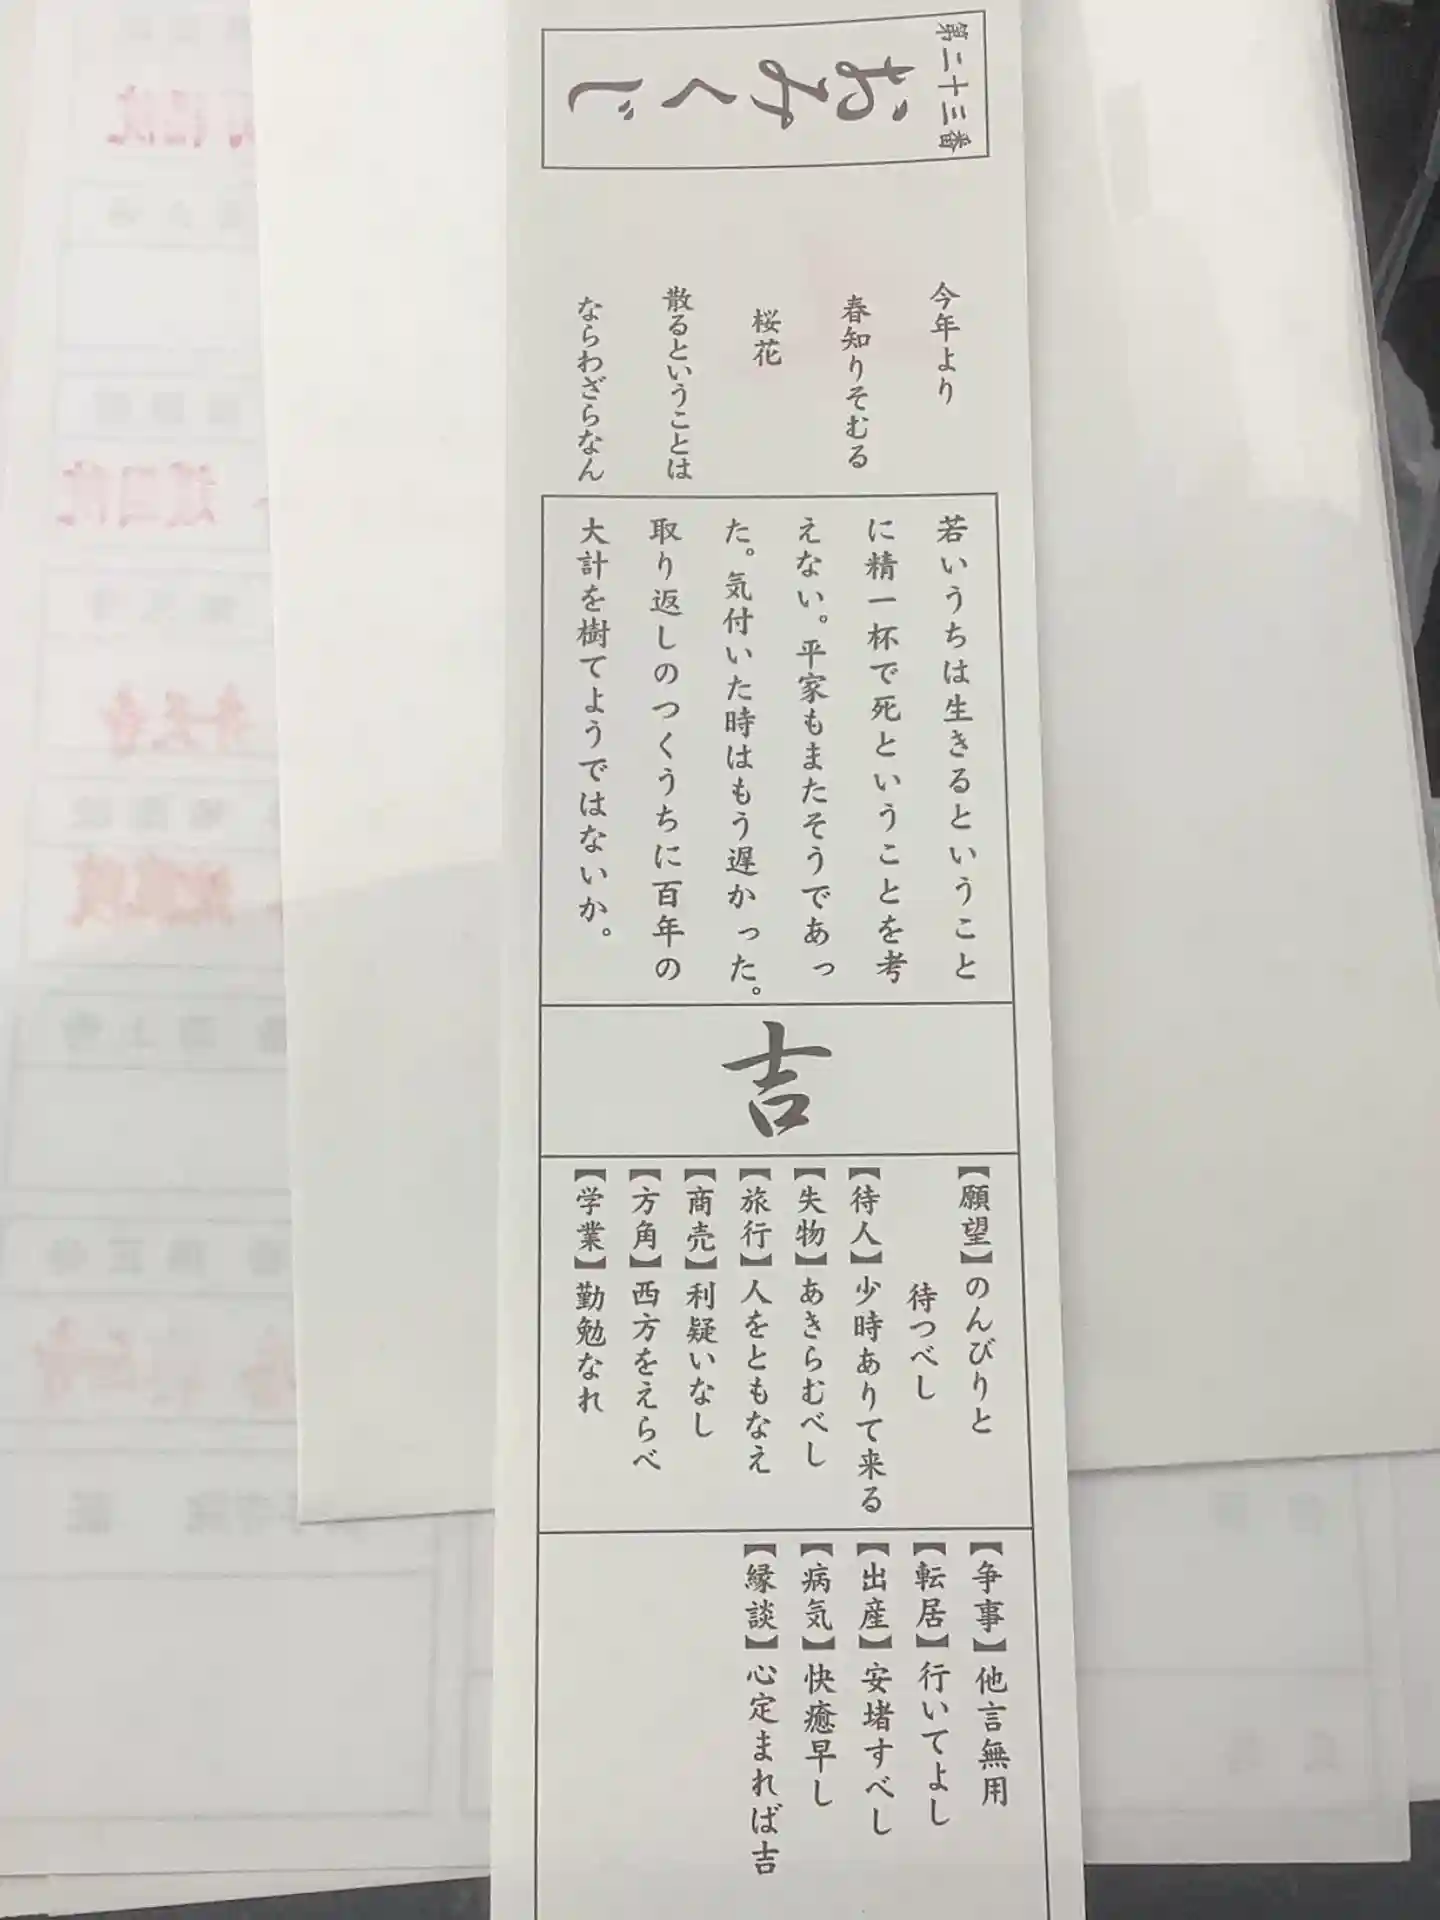 第二十三番
おみくじ
今年より
春知りそむる
桜花
散るということは
ならわざらなん
若いうちは生きるということ
に精一杯で死ということを考
えない。平家もまたそうであっ
た。気付いた時はもう遅かった。
取り返しのつくうちに百年の
大計を樹てようではないか。
吉
【願望】のんびりと
待つべし
【待人】少時ありて来る
【失物】あきらむべし
【旅行】人をともなえ
【商売】利疑いなし
【方角】西方をえらべ
【学業】勤勉なれ
【争事】他言無用
【転居】行いてよし
【出産】安堵すべし
【病気】快癒早し
【縁談】心定まれば吉